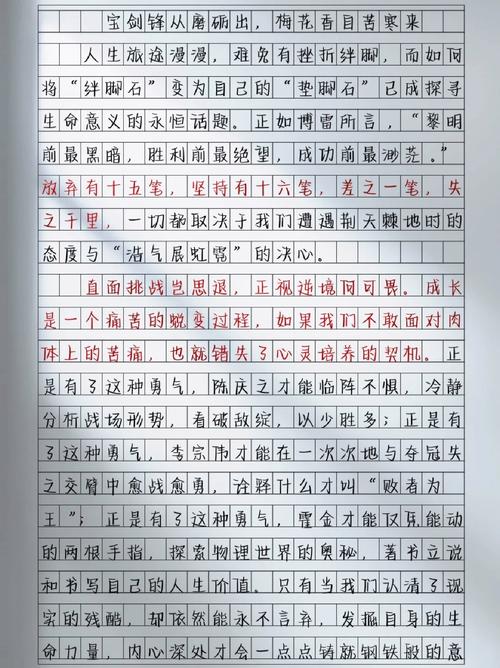 宝剑锋从磨砺出，梅花香自苦寒来
人生旅途漫漫，难免有挫折绊脚，而如何
将“绊脚石”变为自己的“垫脚石”已成探寻
生命意义的永恒话题。正如博雷所言，“黎明
前最黑暗，胜利前最绝望，成功前最渺茫。”
放弃有十五笔，坚持有十六笔，差之一笔，失
之千里，一切都取决于我们遭遇荆天棘地时的
态度与“浩气展虹霓”的决心。
直面挑战岂思退，正视逆境何可畏。成长
是一个痛苦的蜕变过程，如果我们不敢面对肉
体上的苦痛，也就错失了心灵培养的契机。正
是有了这种勇气，陈庆之才能临阵不惧，冷静
分析战场形势，看破敌绽，以少胜多；正是有
了这种勇气，李宗伟才能在一次次地与夺冠失
之交臂中愈战愈勇，诠释什么才叫“败者为
王”；正是有了这种勇气，霍金才能仅凭能动
的两根手指，探索物理世界的奥秘，著书立说
和书写自己的人生价值。只有当我们认清了现
实的残酷，却依然能永不言弃，发掘自身的生
命力量，内心深处才会一点点铸就钢铁般的意